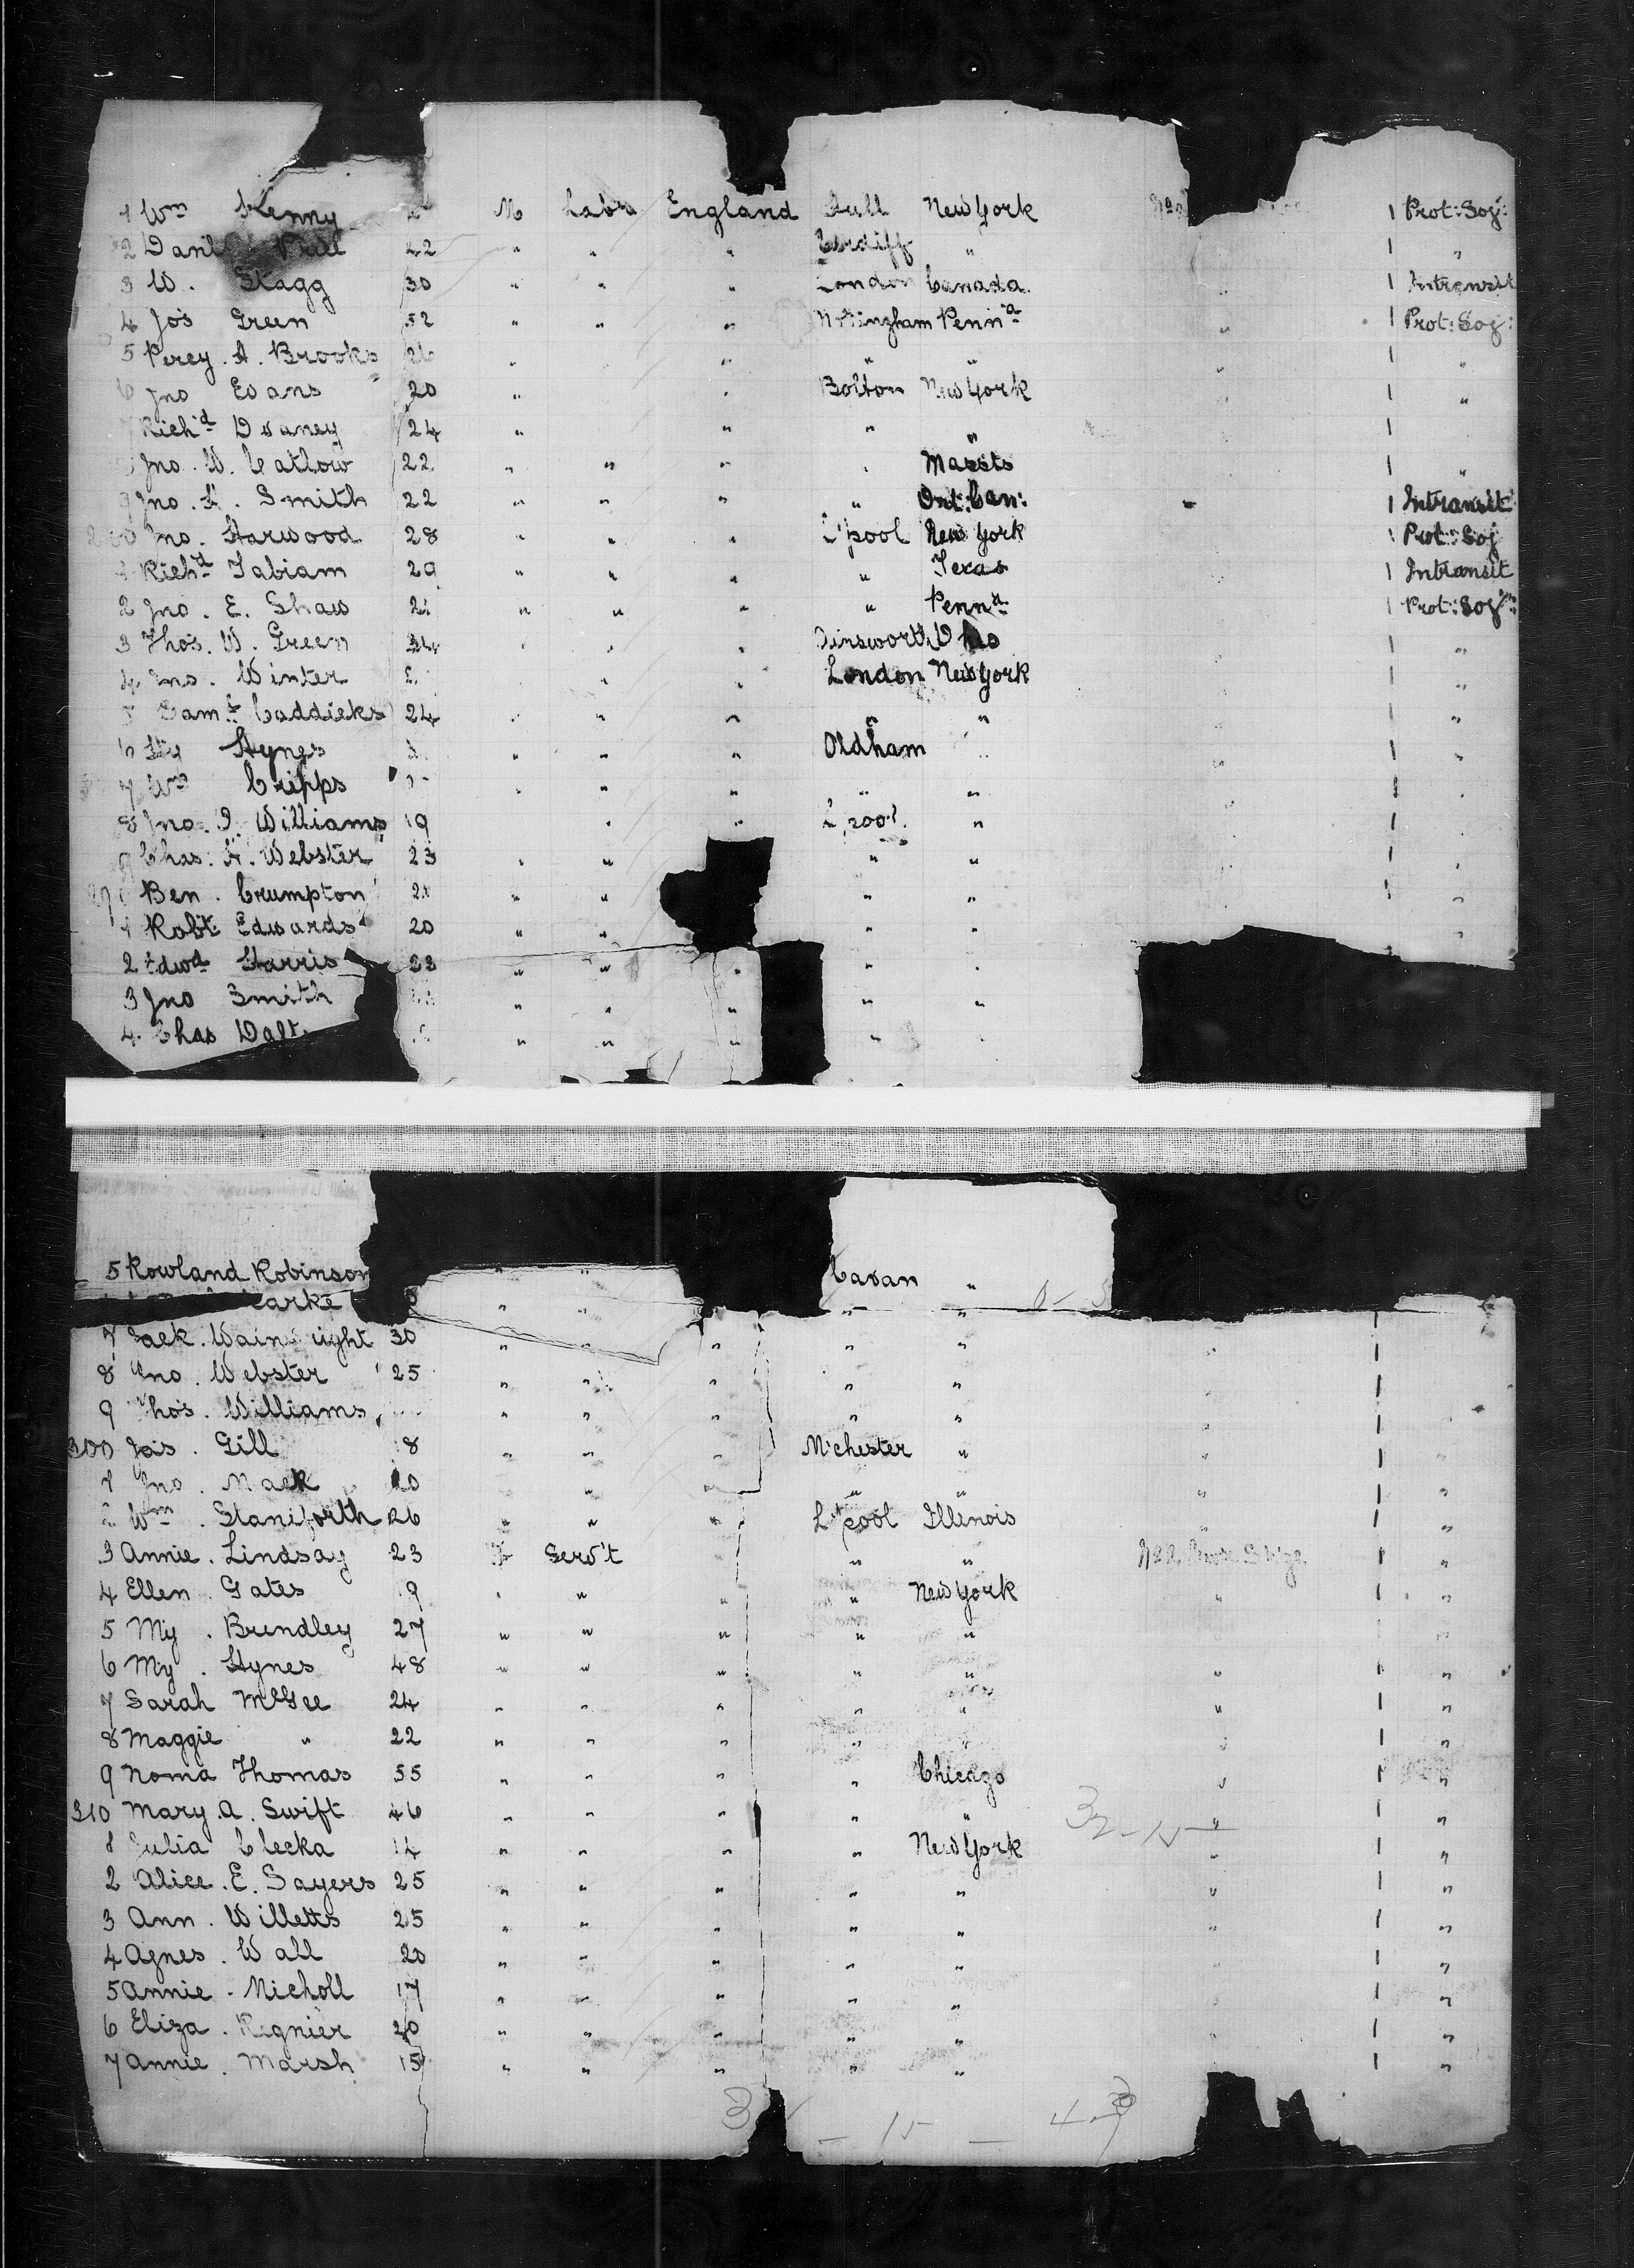 1 Wm Kenny M Labr England Hull New York 1 Prot: Soj:
2 Danl 42 " " " Cardiff " 1 "
3 W. Stagg 30 " " " London Canada 1 Intransit
4 Jos Green 52 " " " Nottingham Penna " 1 Prot: Soj:
5 Percy. A. Brooks 26 " " " " " 1 "
6 Jno Evans 20 " " Bolton New York 1 "
Richd 24 " " " " 1
Jno. W. Catlow 22 " " " " Massts 1 "
9 Jno. H. Smith 22 " " " " Ont: Can: 1 Intransit
Jno. Harwood 28 " " " L'pool New York 1 Prot: Soj
1 Richd Fabiam 29 " " " " Texas 1 Intransit
2 Jno. E. Shaw " " " " Penna 1 Prot: Soj
3 Thos. W. Green 34 " " " Ainsworth Ohio 1 "
4 Jno. Winter " " London New York 1 "
Saml Caddicks 24 " " " " " 1 "
6 Hy Hynes " " " Oldham " 1 "
7 Wm Cripps " " " " " 1 "
8 Jno. Williams 19 " " L'pool " 1 "
9 Chas. H. Webster 23 " " " " 1 "
Ben. Crumpton " " " " 1 "
1 Robt Edwards 20 " " " " 1 "
2 Edwd Harris 23 " " " " "
3 Jno Smith " " " " "
4. Chas " " " " "
5 Rowland Robinson " " Cavan "
" " " " "
7 Jack. Wainwright 30 " " " " " " 1 "
8 Jno. Webster 25 " " " " " " 1 "
9 Thos. Williams " " " " " " 1 "
300 Jas. Gill 18 " " " M'chester " " 1 "
1 Jno. Mack 20 " " " " " " 1 "
2 Wm. Staniforth 26 " " " L'pool Illinois " 1 "
3 Annie. Lindsay 23 F Serv't " " " 1 "
4 Ellen. Gates 19 " " " " New York " 1 "
5 My. Brindley 27 " " " " " " 1 "
6 My. Hynes 48 " " " " " " 1 "
7 Sarah McGee 24 " " " " " " 1 "
8 Maggie " 22 " " " " " " 1 "
9 Noma Thomas 55 " " " " Chicago " 1 "
310 Mary. A. Swift 46 " " " " " " 1 "
1 Julia Clecka 14 " " " " New York " 1 "
2 Alice. E. Sayers 25 " " " " " " 1 "
3 Ann. Willetts 25 " " " " " " 1 "
4 Agnes. Wall 20 " " " " " " 1 "
5 Annie. Nicholl 17 " " " " " " 1 "
6 Eliza. Regnier 20 " " " " " " 1 "
7 Annie. Marsh 15 " " " " " 1 "